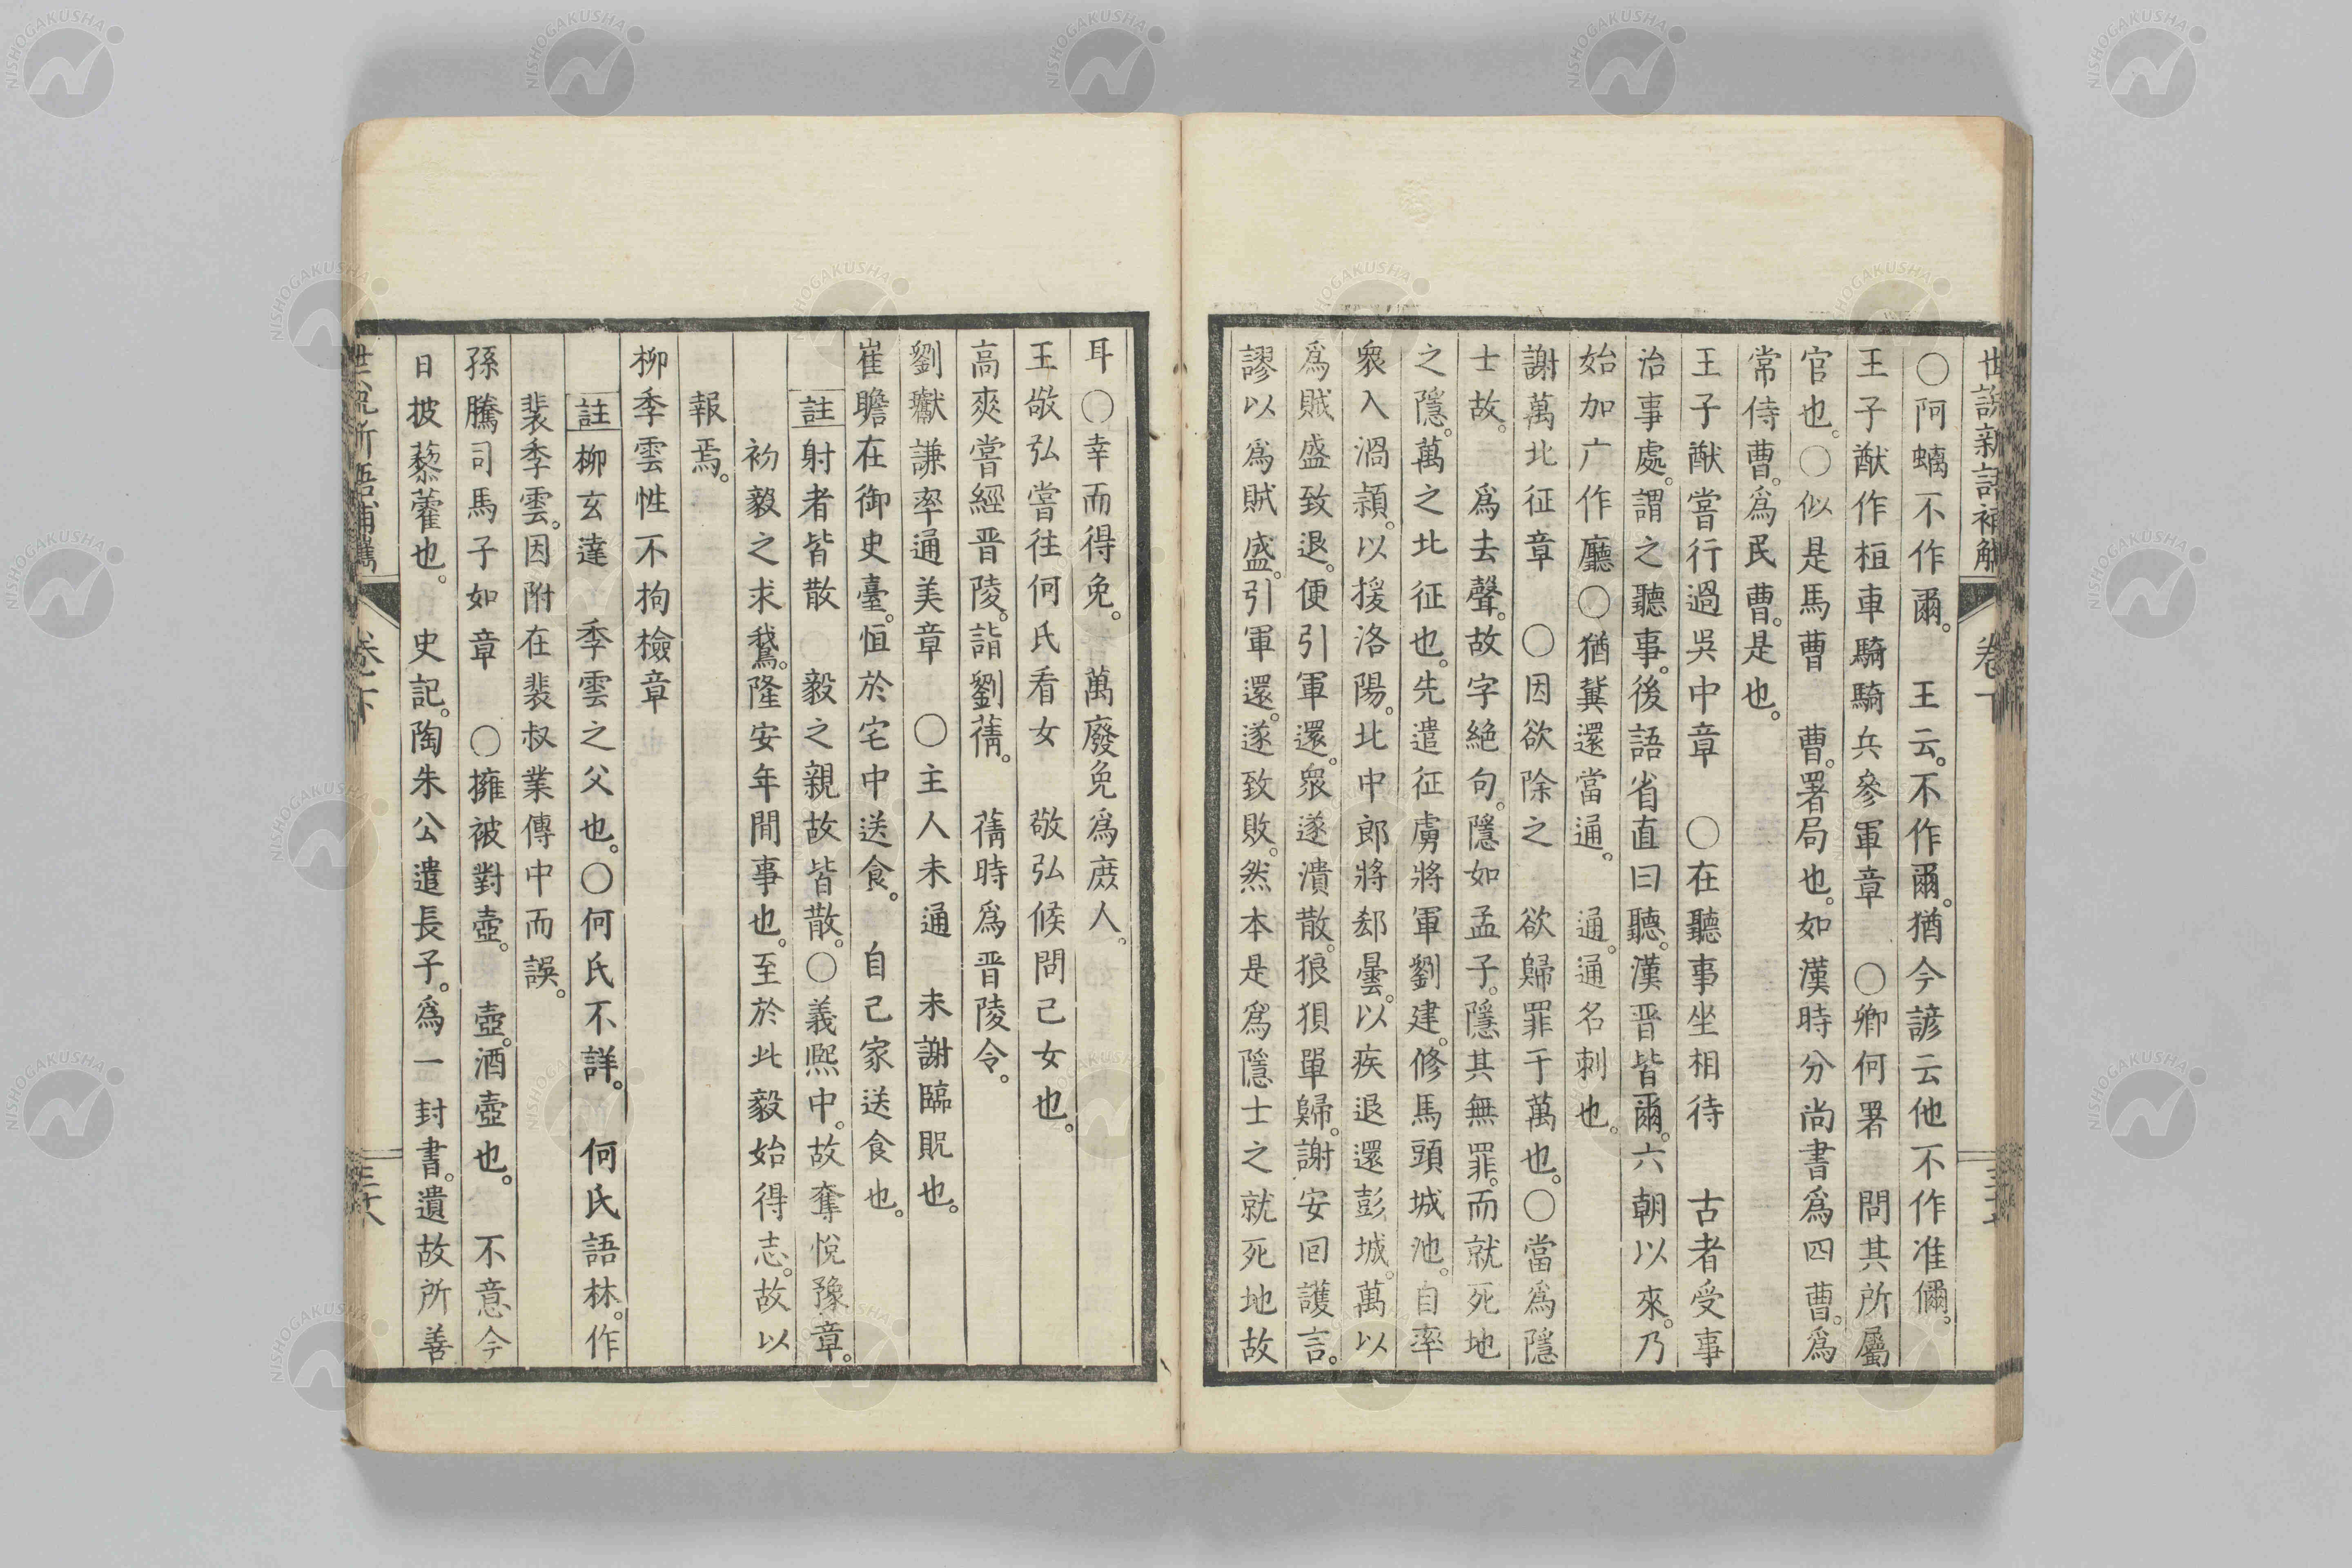 世説新語補觽 卷下
○阿螭不作爾。 王云。不作爾。猶今諺云他不作准儞。
王子猷作桓車騎騎兵參軍章 ○卿何署 問其所屬
官也。○似是馬曹 曹。署局也。如漢時分尚書爲四曹。爲
常侍曹。爲民曹。是也。
王子猷嘗行過吳中章 ○在聽事坐相待 古者受事
治事處。謂之聽事。後語省直曰聽。漢晋皆爾。六朝以來。乃
始加广作廳○猶冀還當通。 通。通名刺也。
謝萬北征章 ○因欲除之 欲歸罪于萬也。○當爲隱
士故。 爲去聲。故字絶句。隱如孟子。隱其無罪。而就死地
之隱。萬之北征也。先遣征虜將軍劉建。修馬頭城池。自率
衆入渦潁。以援洛陽。北中郎將郄曇。以疾退還彭城。萬以
爲賊盛致退。便引軍還。衆遂潰散。狼狽單歸。謝安回護言。
謬以爲賊盛。引軍還。遂致敗。然本是爲隱士之就死地故
耳○幸而得免。 萬廢免爲庶人。
王敬弘嘗往何氏看女 敬弘候問己女也。
高爽嘗經晋陵。詣劉蒨。 蒨時爲晋陵令。
劉瓛謙率通美章 ○主人未通 未謝臨貺也。
崔瞻在御史臺。恒於宅中送食。 自己家送食也。
註射者皆散 毅之親故皆散。○義熙中。故奪悅豫章。
初毅之求鵞。隆安年間事也。至於此毅始得志。故以
報焉。
柳季雲性不拘檢章
註柳玄達 季雲之父也。○何氏不詳。 何氏語林。作
裴季雲。因附在裴叔業傳中而誤。
孫騰司馬子如章 ○擁被對壺。 壺。酒壺也。 不意今
日披藜藿也。 史記。陶朱公遣長子。爲一封書。遺故所善